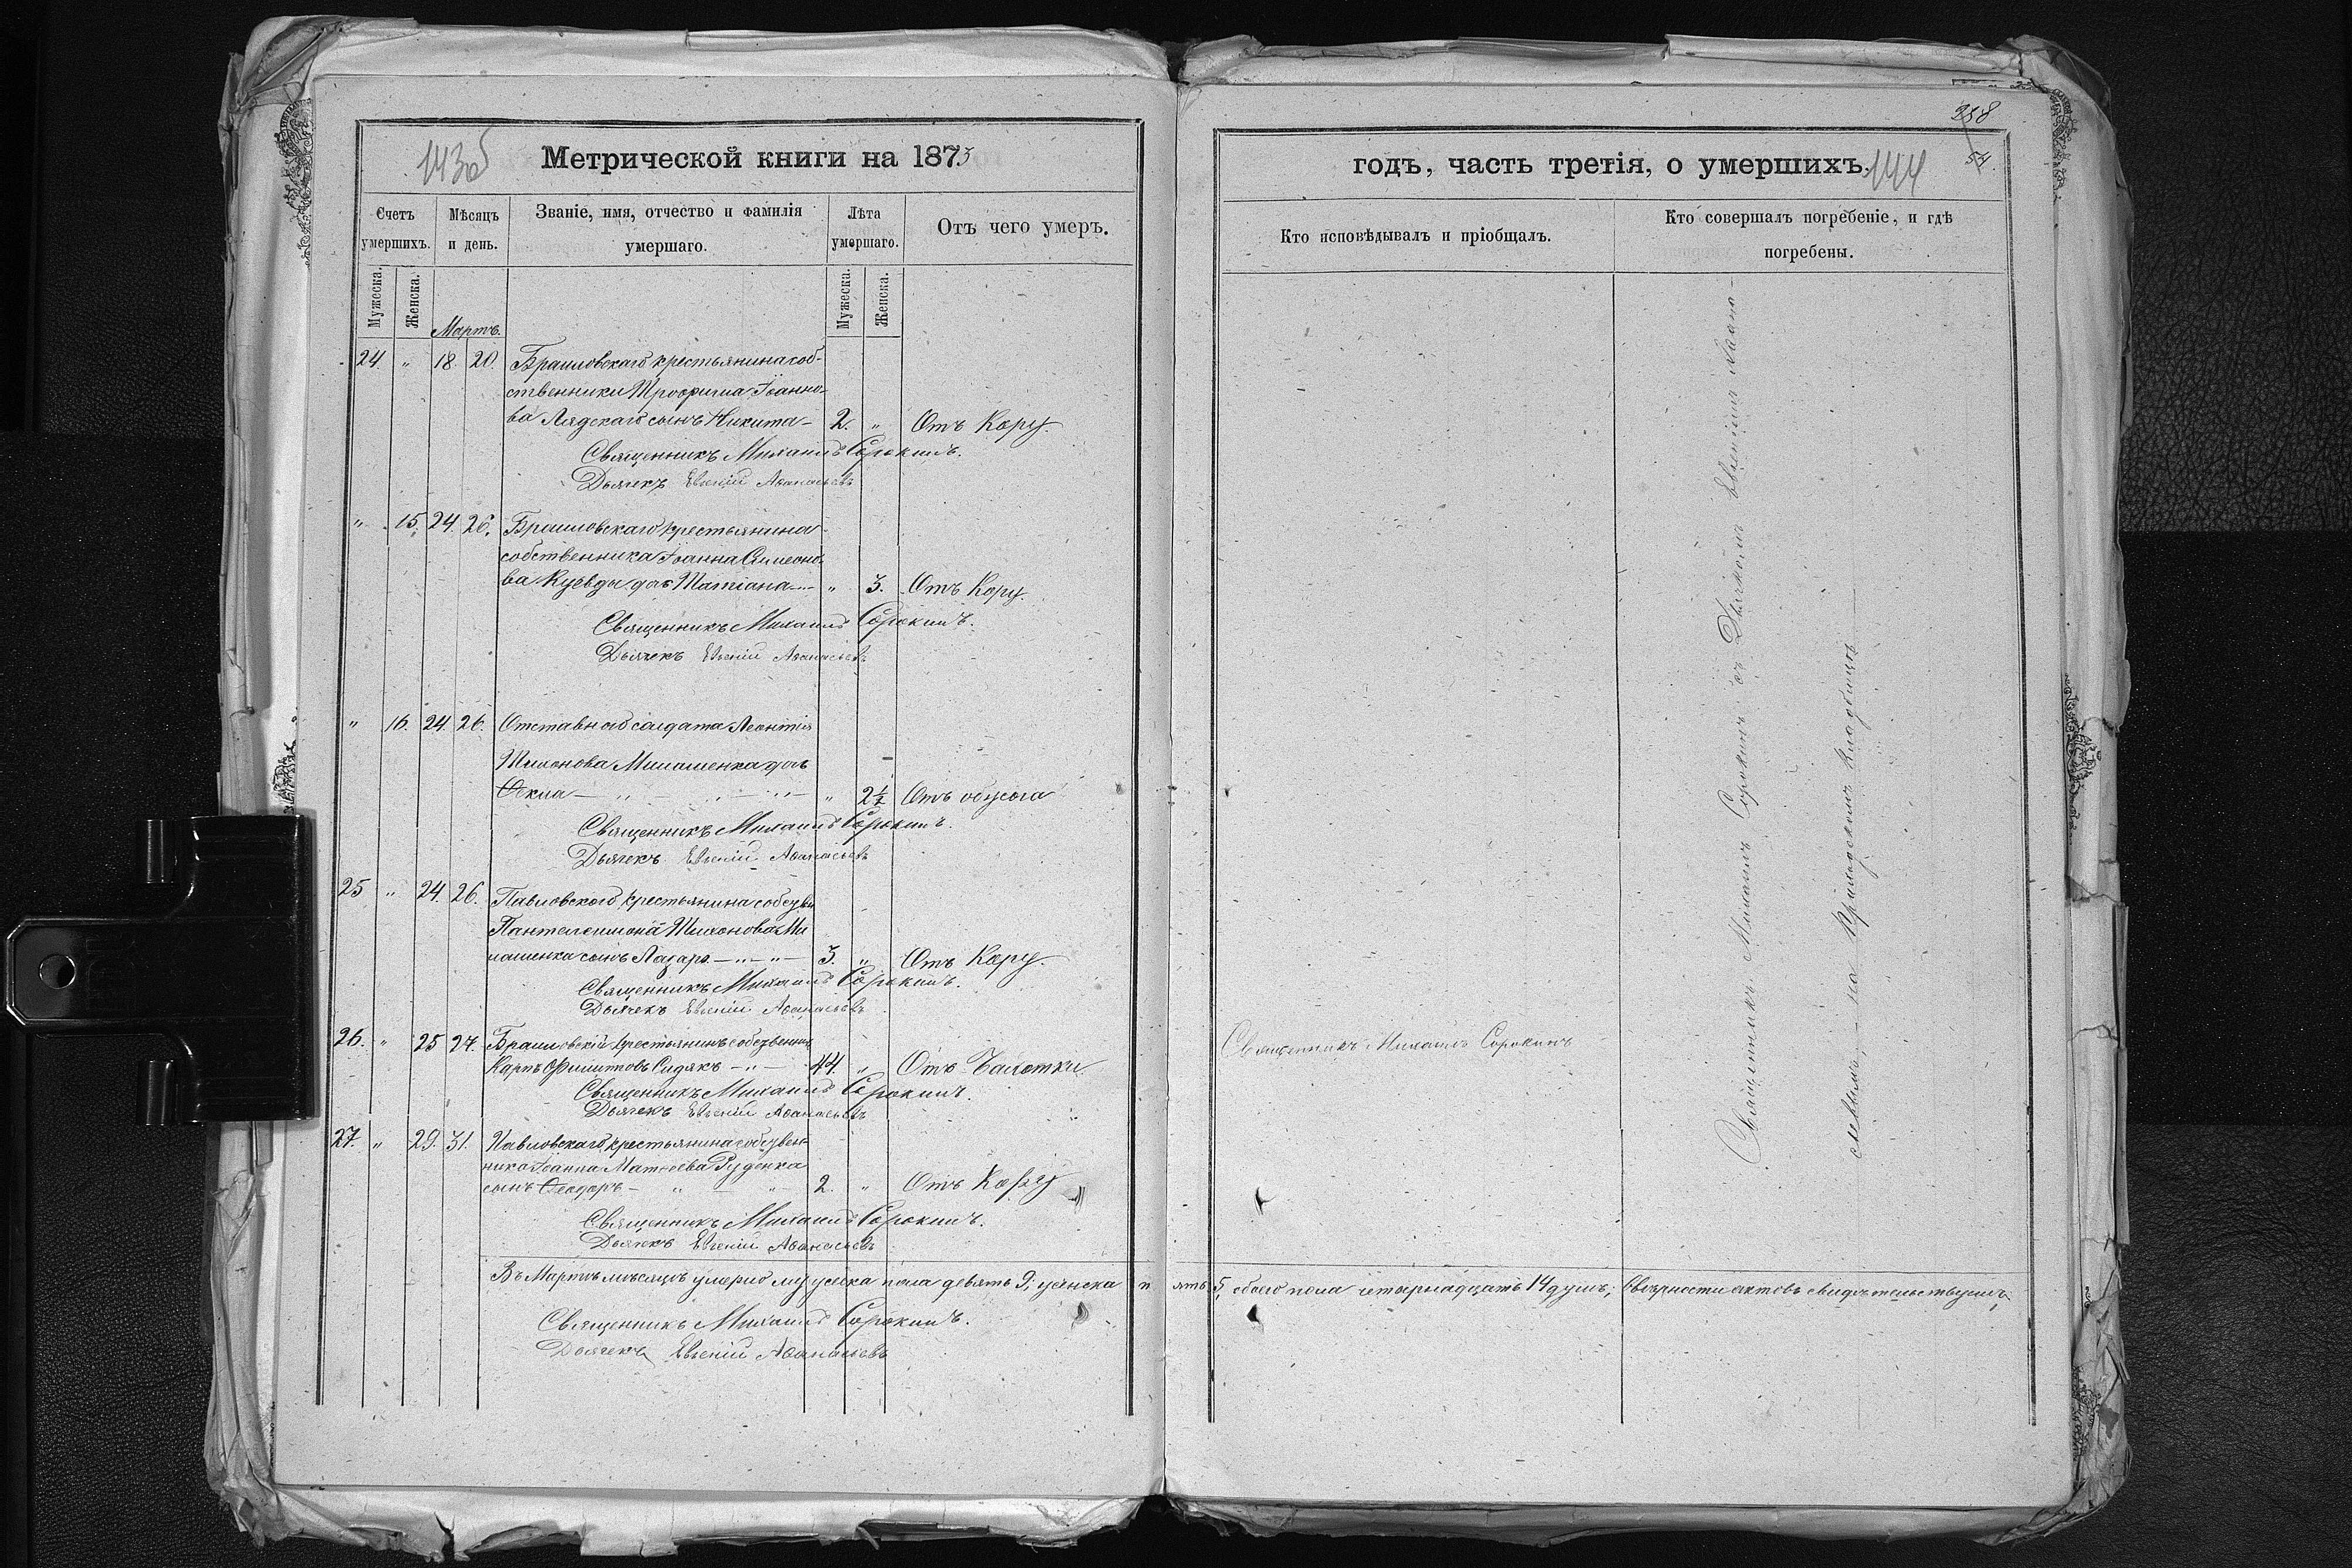 143об
Метрической книги на 1873
Счетъ умершихъ.
Мѣсяцъ и день.
Званіе, имя, отчество и фамилія умершаго.
Лѣта умершаго.
Отъ чего умеръ.
Мужеска.
Женска.
Мартъ.
Мужеска.
Женска.
24. " 18. 20. Браиловскаго крестьянина соб-
ственники Трофима Іоанно-
ва Лядскаго сынъ Никита — 2. " Отъ Кору.
Священникъ Михаилъ Сорокинъ.
Дьячекъ Евгеній Аѳанасьевъ
" 15. 24. 26. Браиловскаго крестьянина
собственника Іоанна Симеоно-
ва дочь Татіана — " 3. Отъ Кору.
Священникъ Михаилъ Сорокинъ.
Дьячекъ Евгеній Аѳанасьевъ
" 16. 24. 26. Отставнаго солдата Леонтія
Тихонова Милашенка дочь
" 2½ Отъ
Священникъ Михаилъ Сорокинъ.
Дьячекъ Евгеній Аѳанасьевъ
25 " 24. 26. Павловского крестьянина
Пантелеимона Тихонова Ми
лашенка сынъ Лазарь — " — " — 3. " Отъ Кору.
Священникъ Михаилъ Сорокинъ.
Дьячекъ Евгеній Аѳанасьевъ
26. " 25 27. Браиловскій крестьянинъ
Карпъ Филипповъ Сидякъ — " — 44. " Отъ Чахотки
Священникъ Михаилъ Сорокинъ.
Дьячекъ Евгеній Аѳанасьевъ
27. " 29. 31. Павловскаго крестьянина собствен-
ника Іоанна Матѳеева Руденка
сынъ Ѳеодоръ — " — " — 2. " Отъ Кору
Священникъ Михаилъ Сорокинъ.
Дьячекъ Евгеній Аѳанасьевъ
Въ Мартѣ мѣсяцѣ умерло мужеска пола девять 9, женска п
Священникъ Михаилъ Сорокинъ.
Дьячекъ Евгеній Аѳанасьевъ
258
54.
годъ, часть третія, о умершихъ.
144
Кто исповѣдывалъ и пріобщалъ.
Кто совершалъ погребеніе, и гдѣ погребены.
Священникъ Михаилъ Сорокинъ
Священникъ Михаилъ Сорокинъ съ Дьячкомъ Евгеніемъ Аѳана-
сьевымъ — на Приходскомъ Кладбищѣ —
ять 5, обоего пола четырнадцать 14 душъ; въ вѣрности актовъ свидѣтельствуемъ